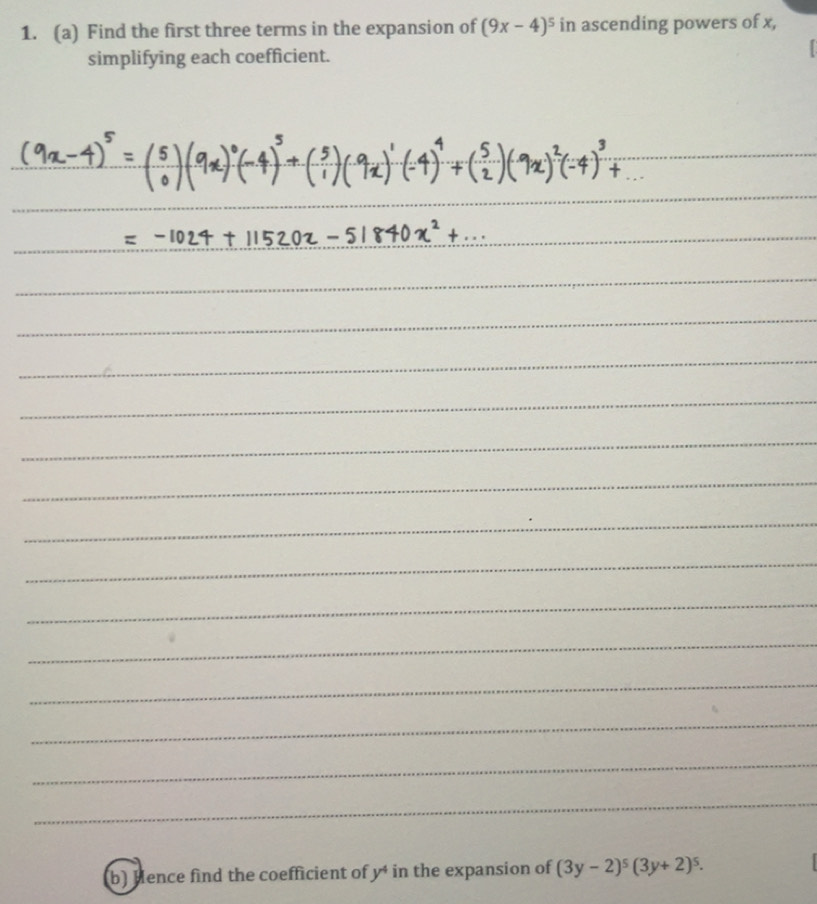 1. (a) Find the first three terms in the expansion of (9x – 4)⁵ in ascending powers of x,
simplifying each coefficient.
(9x-4)⁵ = (5 0)(9x)⁰(-4)⁵ + (5 1)(9x)¹(-4)⁴ + (5 2)(9x)²(-4)³ + ...
= -1024 + 11520x - 51840x² + ...
(b) Hence find the coefficient of y⁴ in the expansion of (3y – 2)⁵ (3y+ 2)⁵.